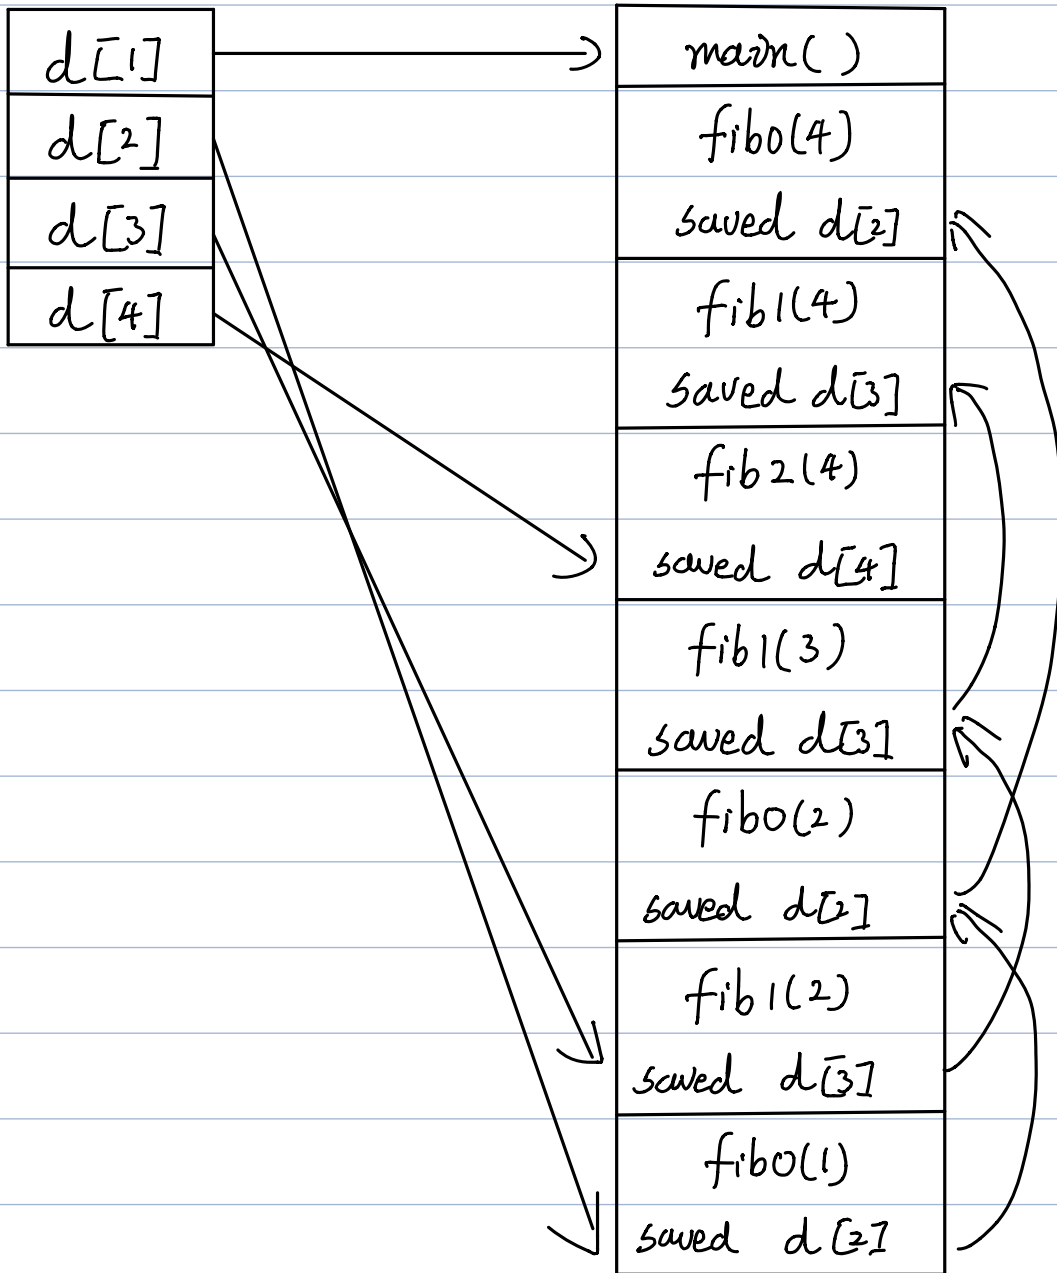 d[1]
d[2]
d[3]
d[4]
main()
fib0(4)
saved d[2]
fib1(4)
saved d[3]
fib2(4)
saved d[4]
fib1(3)
saved d[3]
fib0(2)
saved d[2]
fib1(2)
saved d[3]
fib0(1)
saved d[2]